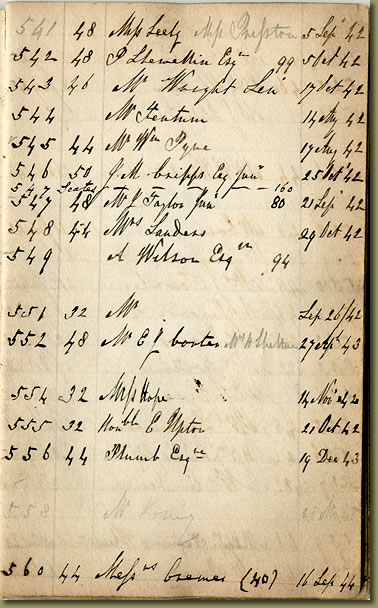 541 48 Miss Seely Miss Preston 5 Sep 42
542 48 P Llewellin Esqr 99 5 Oct 42
543 46 Mr Wright Len 17 Oct 42
544 Mr 14 Aug 42
545 44 Mr Wm Pyne 17 Aug 42
546 50 J. M. Cripps Esq Junr 25 Oct 42
547 160
547 48 Mr J Taylor Junr 80 21 Sep 42
548 44 Mrs Sanders 29 Oct 42
549 A Wilson Esqr 94
551 32 Mr Sep 26/42
552 48 Mr E J Mr H 27 43
554 32 Miss Hope 14 Nov 42
555 32 Honble E Upton 21 Oct 42
556 44 Plumb Esqre 19 Dec 43
558 Mr
560 44 Messrs (40) 16 Sep 44